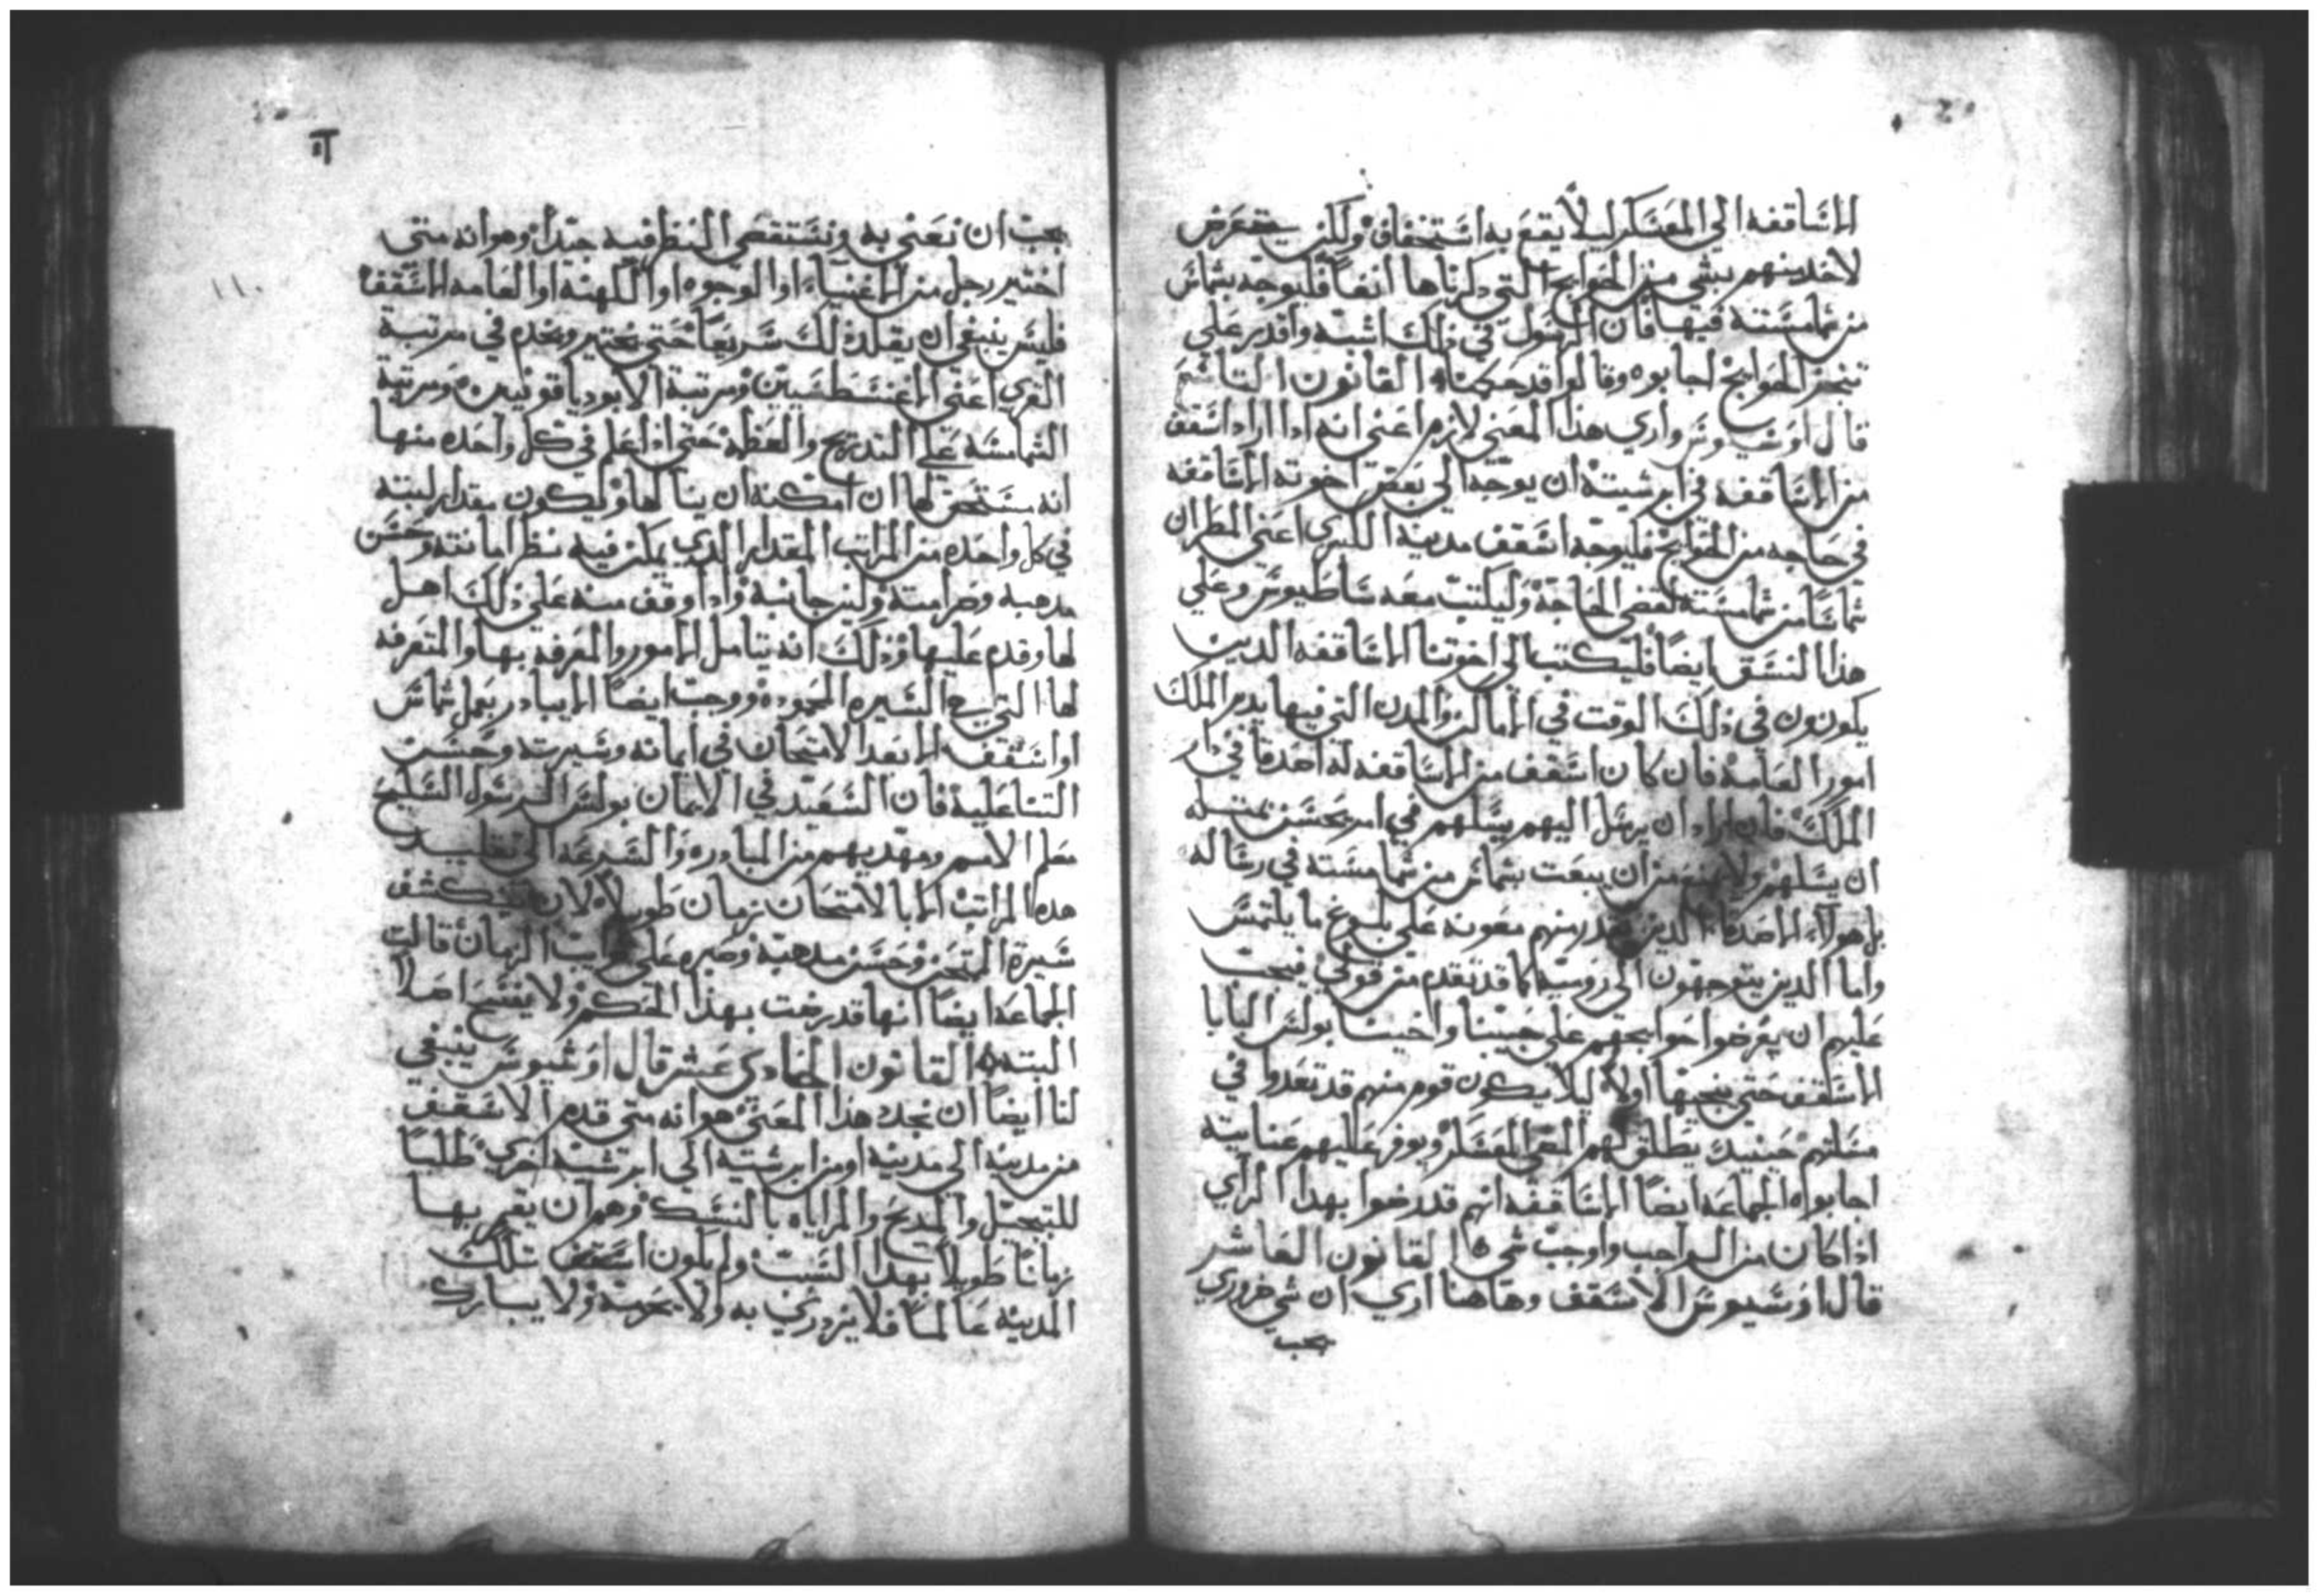 الاساقفه الي المعسكر ليلا يقع به استخفاف ولكن يتعرض
لاحد منهم بشي من الحوايج التي ذكرناها انفا فليوجه بشماس
من شمامسته فيها فان الرسول في ذلك اشبه واقدر علي
تنجز الحوايج اجابوه وقالوا قد حكمنا القانون التاسع
قال اوسيوس واري هذا المعني لازم اعني انه اذا اراد اسقف
من الاساقفه في ابرشيته ان يوجه الي بعض اخوته الاساقفه
في حاجه من الحوايج فليوجه اسقف مدينة الكبري اعني المطران
شماسا من شمامسته لقضي الحاجة وليكتب معه ساطيوس وعلي
هذا النسق ايضا فليكتب الي اخوتنا الاساقفه الدين
يكونون في ذلك الوقت في الاماكن والمدن التي فيها يدبر الملك
امور العامة فان كان اسقف من الاساقفه له اصدقا في دار
الملك فان اراد ان يرسل اليهم يسلهم في امر يحسن بمتله
ان يسلهم ولا يمنع من ان يبعت بشماس من شمامسته في رساله
بل هولاء الاصدقاء الدين منهم معونه علي بلوغ ما يلتمس
واما الدين يتوجهون الي روميه كما قد تقدم من قولي فيجب
عليهم ان يعرضوا حوايجهم علي حبيبنا واخينا بولس البابا
الاسقف حتي يبحتها اولا ليلا يكون قوم منهم قد تعدوا في
مسلتهم حينيد يطلق لهم المضي المعسكر ويوفر عليهم عنايته
اجابوا الجماعه ايضا الاساقفه انهم قد رضوا بهدا الراي
اذا كان من الواجب واوجب شي القانون العاشر
قال اوسيوس الاسقف وهاهنا اري ان شي ضروري
يجب
١١
يجب ان نعني به ونستقصي النظر فيه جيدا وهو انه متي
اختير رجل من الاغنياء او الوجوه او الكهنه او العامه الاسقف
فليس ينبغي ان يقلد ذلك سريعا حتي يختبر ويخدم في مرتبة
القري اعني الاغنسطسين ومرتبة الابودياقونيين ومرتبة
الشمامسه علي التدريج والعظه حتي اذا علم في كل واحده منها
انه مستحق لها ان امكنه ان ينالها وليكون مقدار لبته
في كل واحده من المراتب المقدار الدي يمكن فيه نظر امانته وحسن
مدهبه وصرامته ولين جانبه واذا وقف منه علي ذلك اهل
لها وقدم عليها وذلك انه يتامل الامور والمعرفه بها والمتعرفه
لها التي السيره المحموده ووجب ايضا الا يبادر بعمل شماس
او اسقف الا بعد الامتحان في ايمانه وسيرته وحسن
التنا عليه فان السعيد في الايمان بولس الرسول السليح
معلم الامم ومهديهم من المبادره والسرعه الي تقليد
هده المراتب الا بالامتحان زمان طويلا لان يكشف
سيرة الممتحن وحسن مدهبه وصبره علي الزمان قالت
الجماعه ايضا انها قد رضت بهذا الحكم ولا يفسح احدا
البته القانون الحادي عشر قال اوسيوس ينبغي
لنا ايضا ان نجدد هذا المعني هو انه متي قدم الاسقف
من مدينه الي مدينه او من ابرشية الي ابرشيه اخري طلبا
للتبجيل والمديح والمراياه بالنسك وهم ان يقم بها
زمانا طويلا بهدا السبب ولم يكون اسقف تلك
المدينه عالما فلا يزدري به ولا يحرمه ولا يبارك